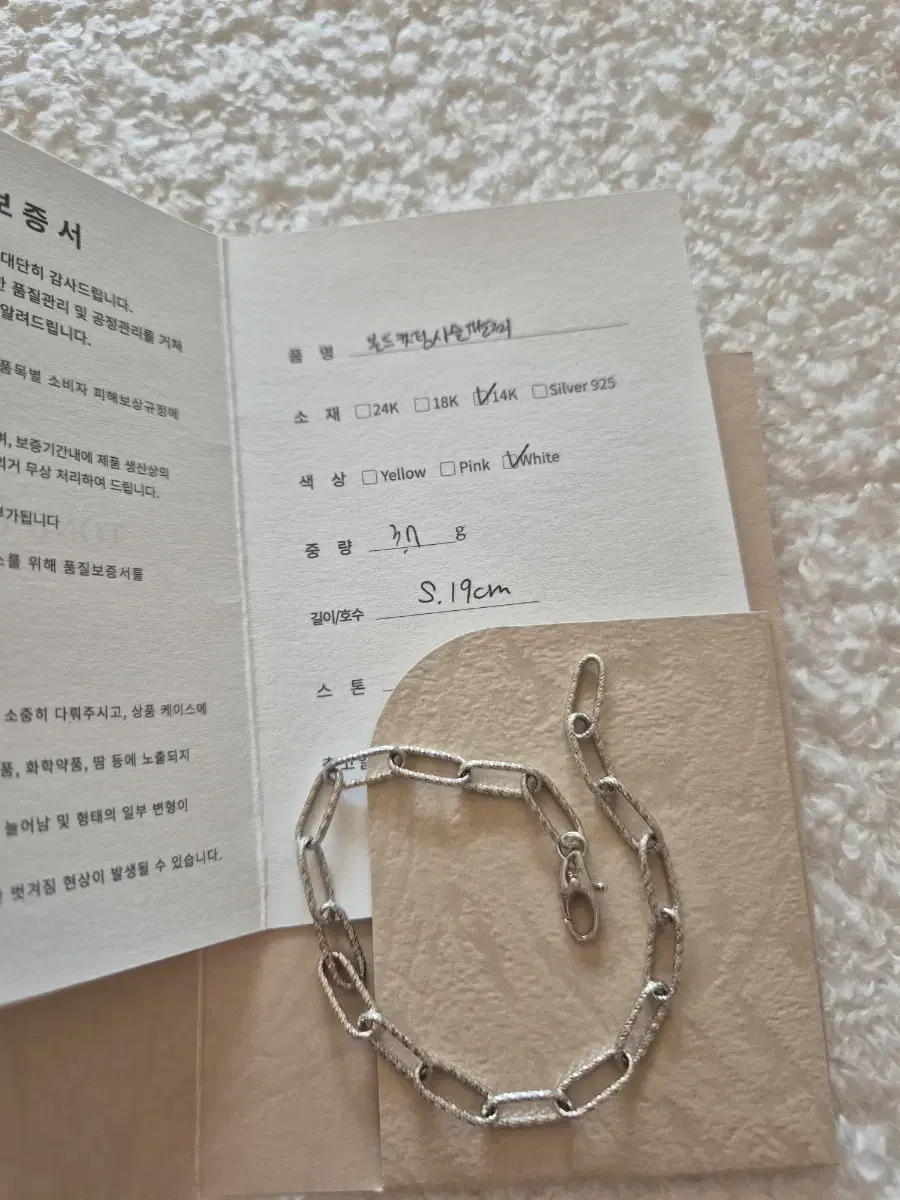 보증서
대단히 감사드립니다.
한 품질관리 및 공정관리를 거쳐
알려드립니다.
품목별 소비자 피해보상규정에
며, 보증기간내에 제품 생산상의
의거 무상 처리하여 드립니다.
부가됩니다
스를 위해 품질보증서를
소중히 다뤄주시고, 상품 케이스에
품, 화학약품, 땀 등에 노출되지
늘어남 및 형태의 일부 변형이
벗겨짐 현상이 발생될 수 있습니다.
품 명 볼드컷팅사슬팔찌
소 재 24K 18K 14K Silver 925
색 상 Yellow Pink White
중 량 g
길이/호수 S. 19cm
스 톤